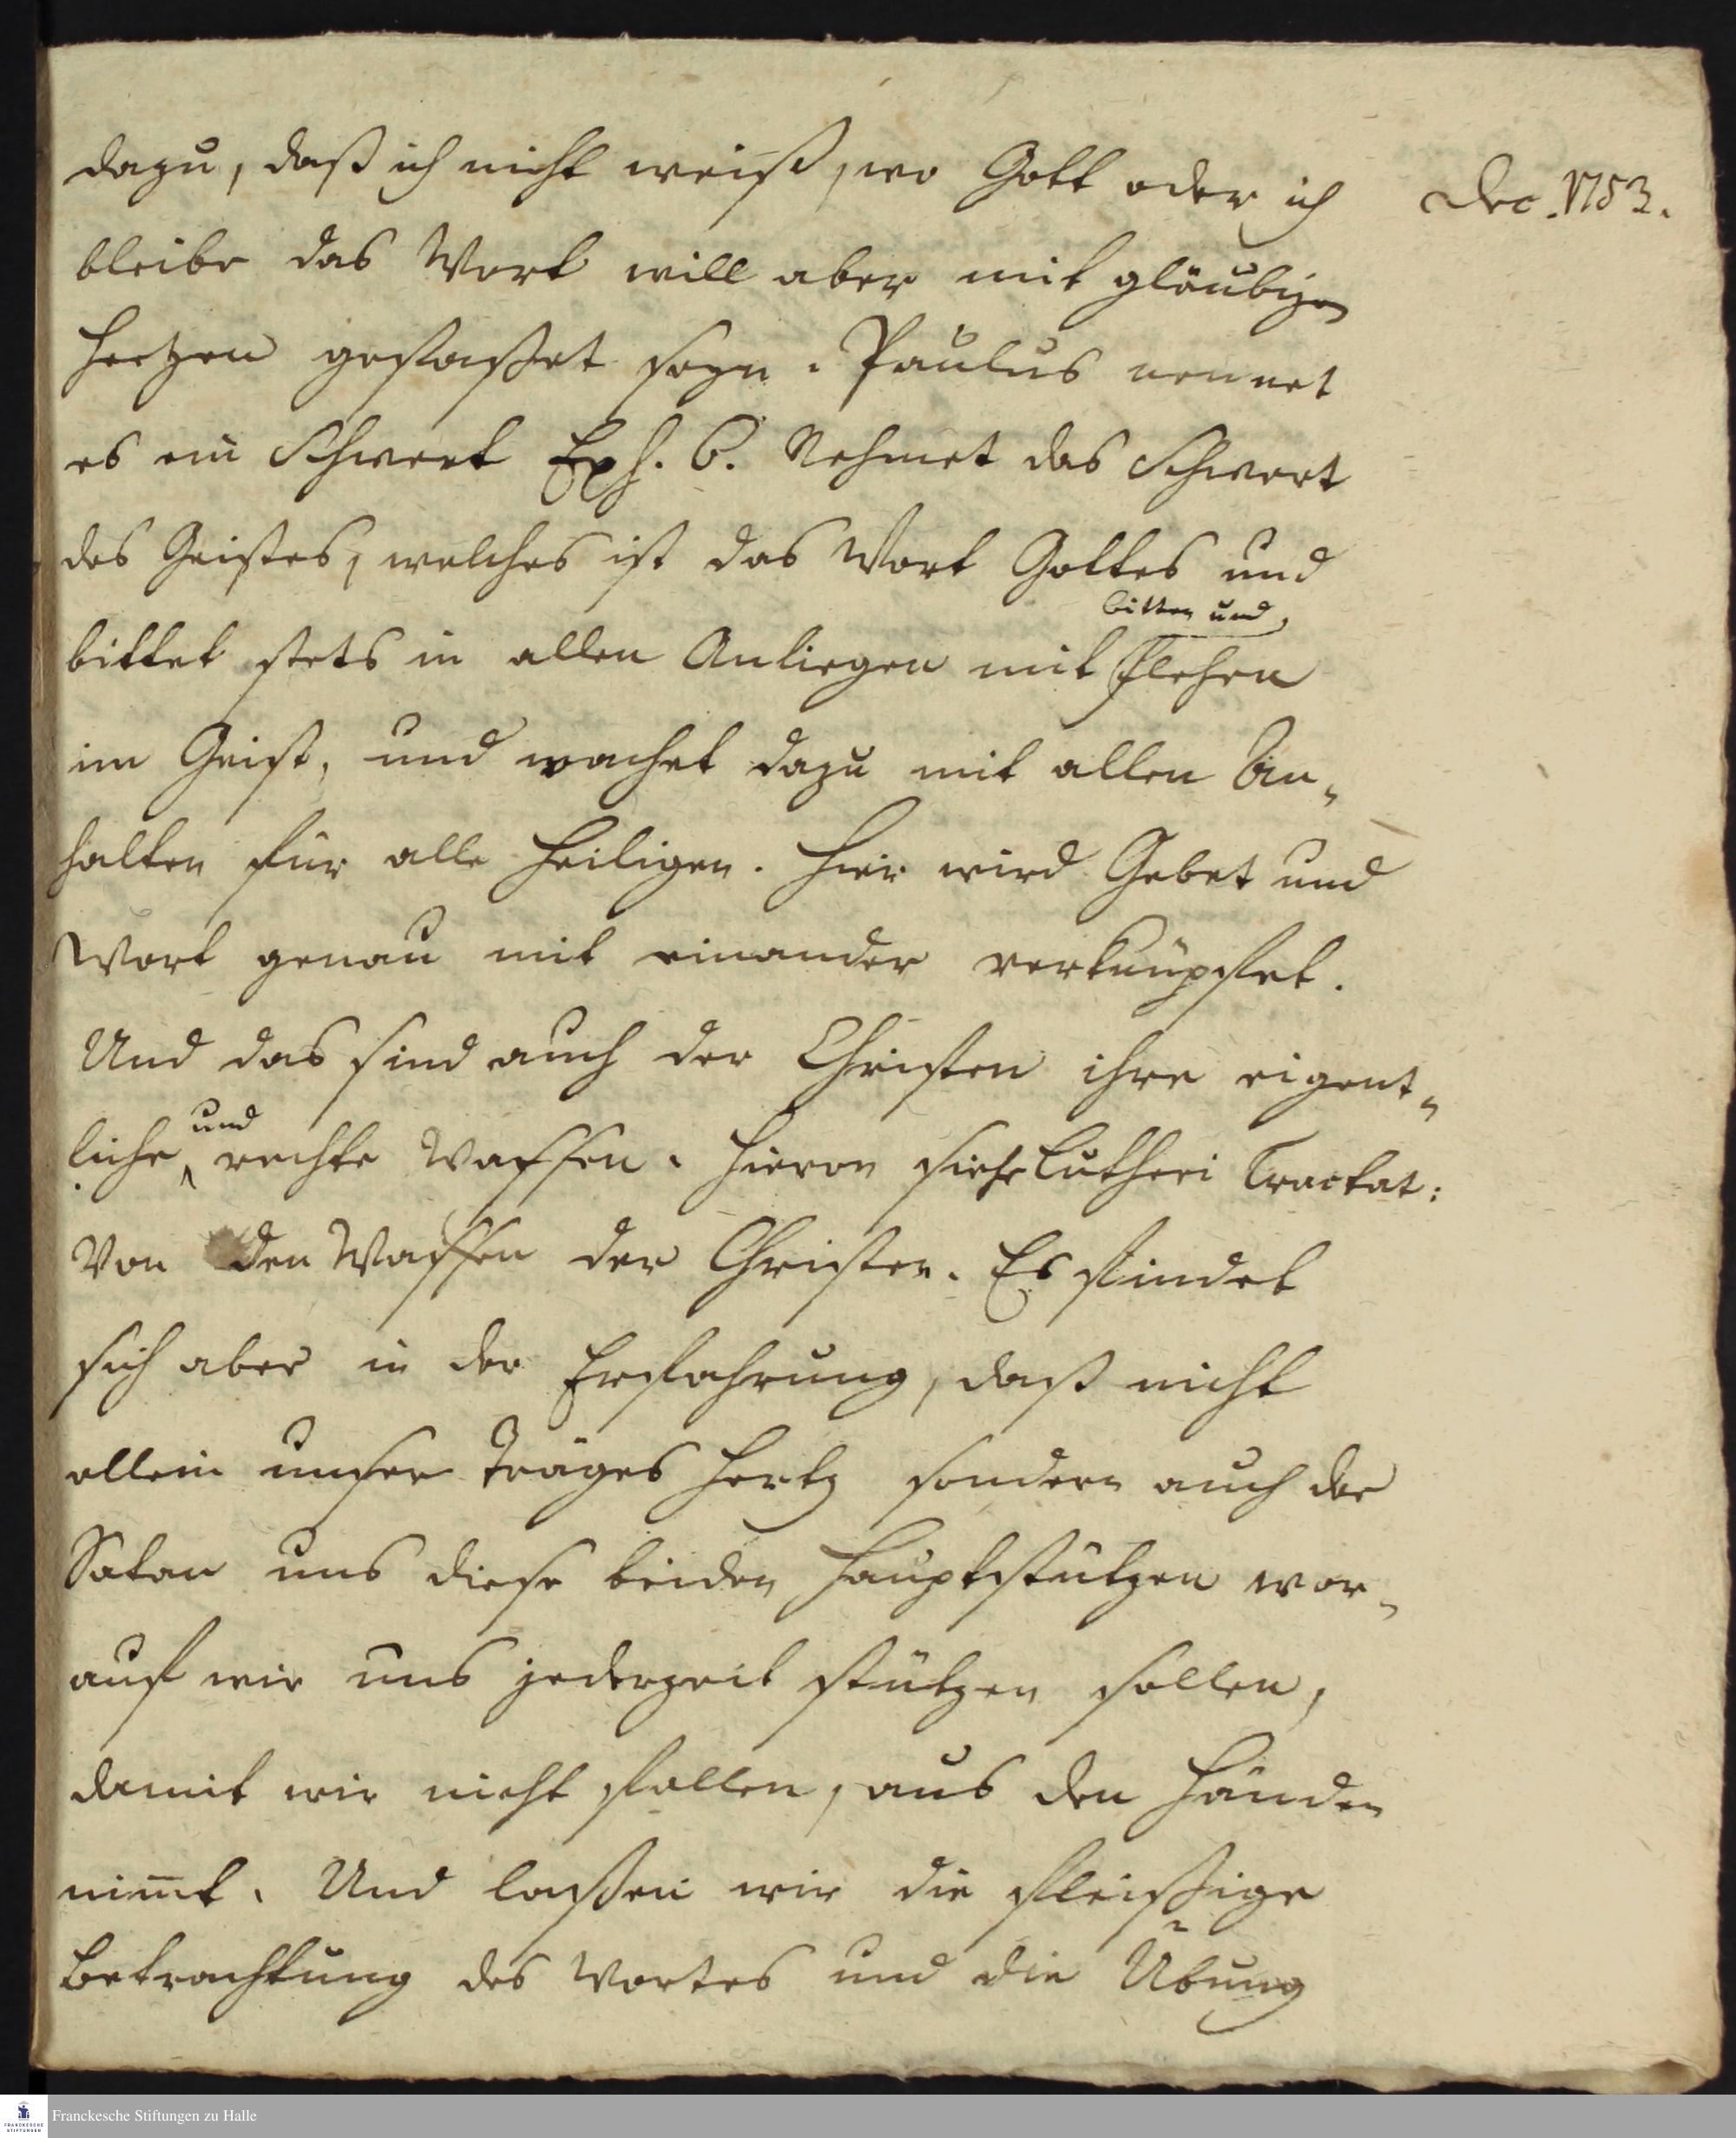 Dec. 1753.
dazu, daß ich nicht weiß, wo Gott oder ich
bleibe das Wort will aber mit gläubigen
Hertzen gefaßet seyn. Paulus nennet
es ein Schwert Eph. 6. Nehmet das Schwert
des Geistes, welches ist das Wort Gottes und
bitten und
bittet stets in allen Anliegen mit Flehen
im Geist, und wachet dazu mit allen An„
halten für alle Heiligen. Hier wird Gebet und
Wort genau mit einander verknüpfet.
Und das sind auch der Christen ihre eigent„
und
liche rechte Waffen. Hievon siehe Lutheri Tractat:
Von den Waffen der Christen. Es findet
sich aber in der Erfahrung, daß nicht
allein unser träges Hertz sondern auch der
Satan uns diese beiden Hauptstützen wor„
auf wir uns jederzeit stützen sollen,
damit wir nicht fallen, aus den Händen
nim̅t. Und laßen wir die fleißige
Betrachtung des Wortes und die Übung
Franckesche Stiftungen zu Halle